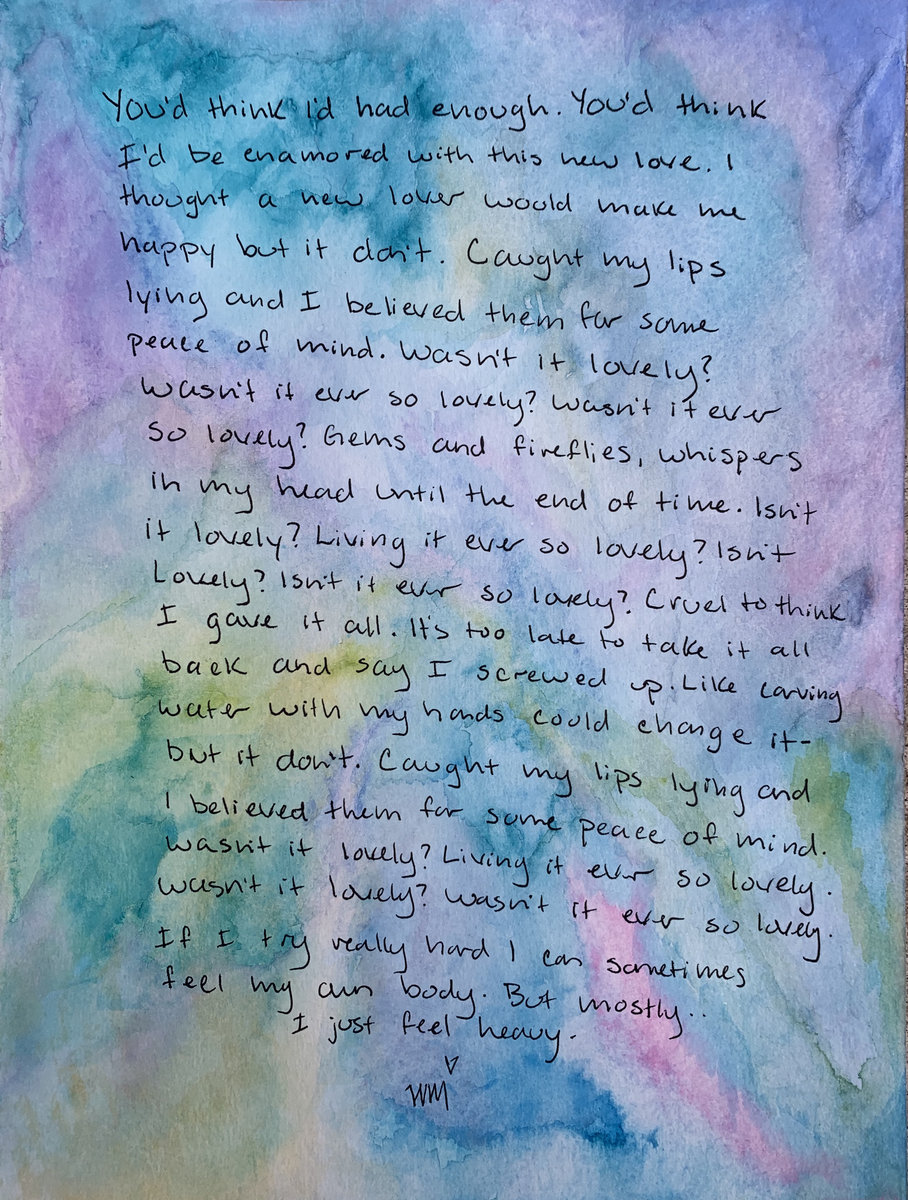 You'd think I'd had enough. You'd think
I'd be enamored with this new love. I
thought a new lover would make me
happy but it don't. Caught my lips
lying and I believed them for some
peace of mind. Wasn't it lovely?
Wasn't it ever so lovely? Wasn't it ever
so lovely? Gems and fireflies, whispers
in my head until the end of time. Isn't
it lovely? Living it ever so lovely? Isn't
Lovely? Isn't it ever so lovely? Cruel to think
I gave it all. It's too late to take it all
back and say I screwed up. Like carving
water with my hands could change it-
but it don't. Caught my lips lying and
I believed them for some peace of mind.
wasn't it lovely? Living it ever so lovely.
wasn't it lovely? Wasn't it ever so lovely.
If I try really hard I can sometimes
feel my own body. But mostly..
I just feel heavy.
WM